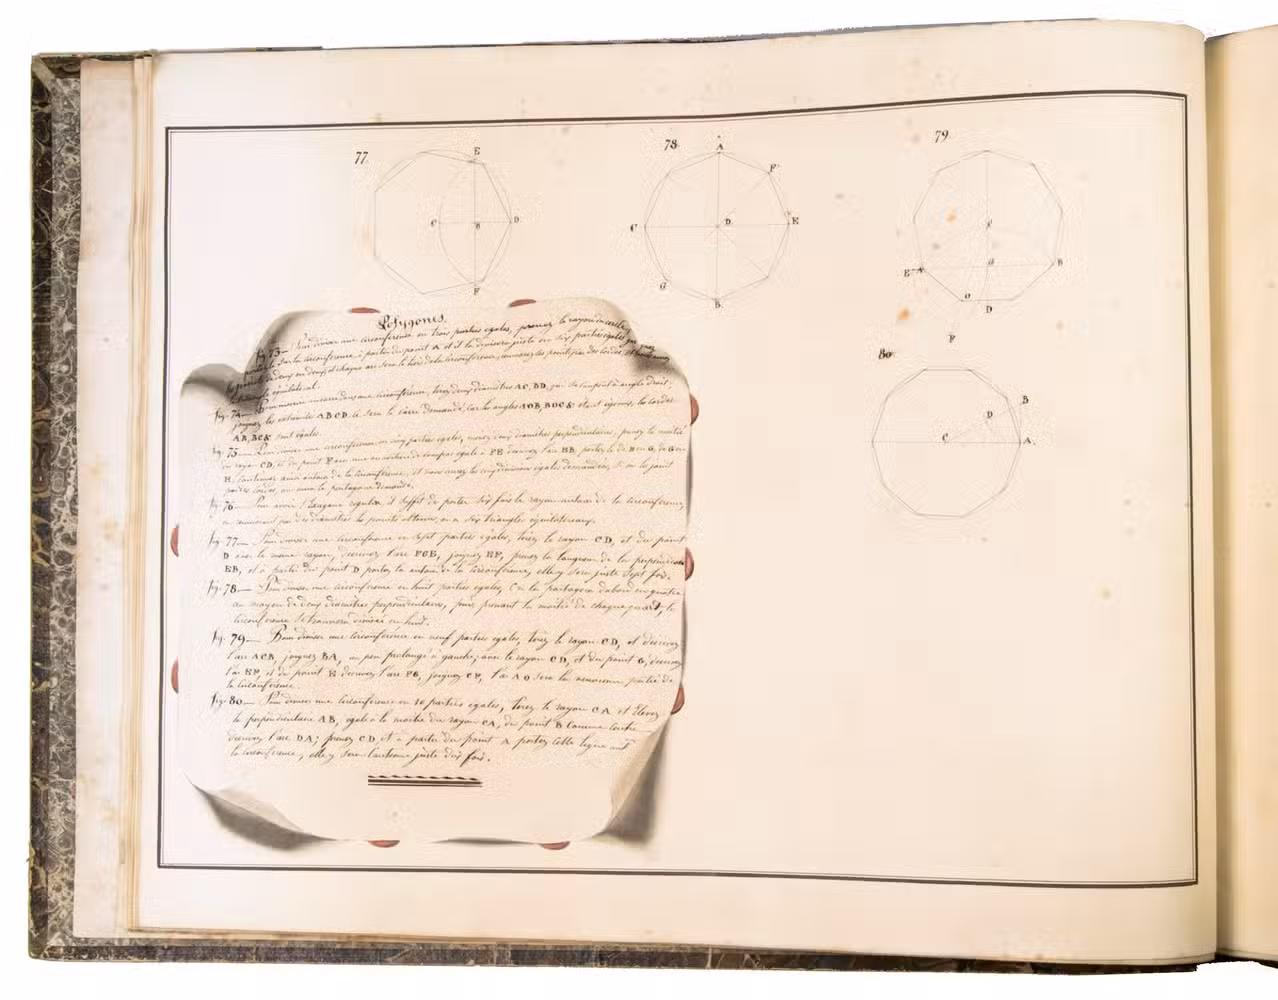 77
E
C
B
D
F
78
A
F
C
D
E
G
B
79
C
E
A
G
B
O
D
F
80
B
D
C
A
Polygones.
fig. 73— Pour diviser une circonférence en trois parties egales, prenez le rayon
sur la circonférence à partir du point A et il la divisera juste en six parties egales,
equilateral.
fig. 74— une circonférence, tirez deux diamètres AC, BD, qui se coupent à angle droit;
joignez les extremités ABCD ce sera le carré demandé, car les angles AOB, BOC & étant egaux, les cordes
AB, BC & sont egales.
fig. 75— Pour diviser une circonférence en cinq parties egales, menez deux diamètres perpendiculaires, prenez la moitié
du rayon CD, et du point F avec une ouverture de compas egale à FE decrivez l'arc EB, portez le de B en G, de G en
H, continuez ainsi autour de la circonférence, et vous aurez les cinq divisions egales demandées, si on les joint
par des cordes, on aura le pentagone demandé.
fig. 76— Pour avoir l'hexagone regulier il suffit de porter six fois le rayon autour de la circonférence,
en unissant par des diamètres les points obtenus, on a six triangles equilateraux.
fig. 77— Pour diviser une circonférence en sept parties egales, tirez le rayon CD, et du point
D avec le meme rayon, decrivez l'arc FCE, joignez EF, prenez la longueur de la perpendiculaire
EB, et à partir du point D portez la autour de la circonférence, elle y sera juste sept fois.
fig. 78— Pour diviser une circonférence en huit parties egales, on la partagera d'abord en quatre
au moyen de deux diamètres perpendiculaires, puis prenant la moitié de chaque quart, la
circonférence se trouvera divisée en huit.
fig. 79— Pour diviser une circonférence en neuf parties egales, tirez le rayon CD, et decrivez
l'arc ACB, joignez BA, un peu prolongé à gauche; avec le rayon CD, et du point G, decrivez
l'arc EF, et du point E decrivez l'arc FG, joignez CF, l'arc AO sera la neuvieme partie de
la circonférence.
fig. 80— Pour diviser une circonférence en 10 parties egales, tirez le rayon CA et elevez
la perpendiculaire AB, egale à la moitié du rayon CA, du point B comme centre
decrivez l'arc DA; prenez CD et à partir du point A portez cette ligne sur
la circonférence, elle y sera contenue juste dix fois.